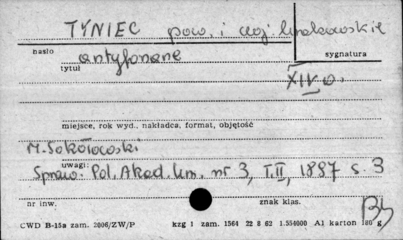 TYNIEC pow. i woj. krakowskie
hasło
sygnatura
antyfonarze
tytuł
XIV w.
miejsce, rok wyd., nakładca, format, objętość
M. Sokołowski
uwagi: Spraw. Pol. Akad. Um. nr 3, T. II, 1887 s. 3
nr inw.
znak klas.
CWD B-15a zam. 2006/ZW/P kzg 1 zam. 1564 22 8 62 1.554000 A1 karton 180 g